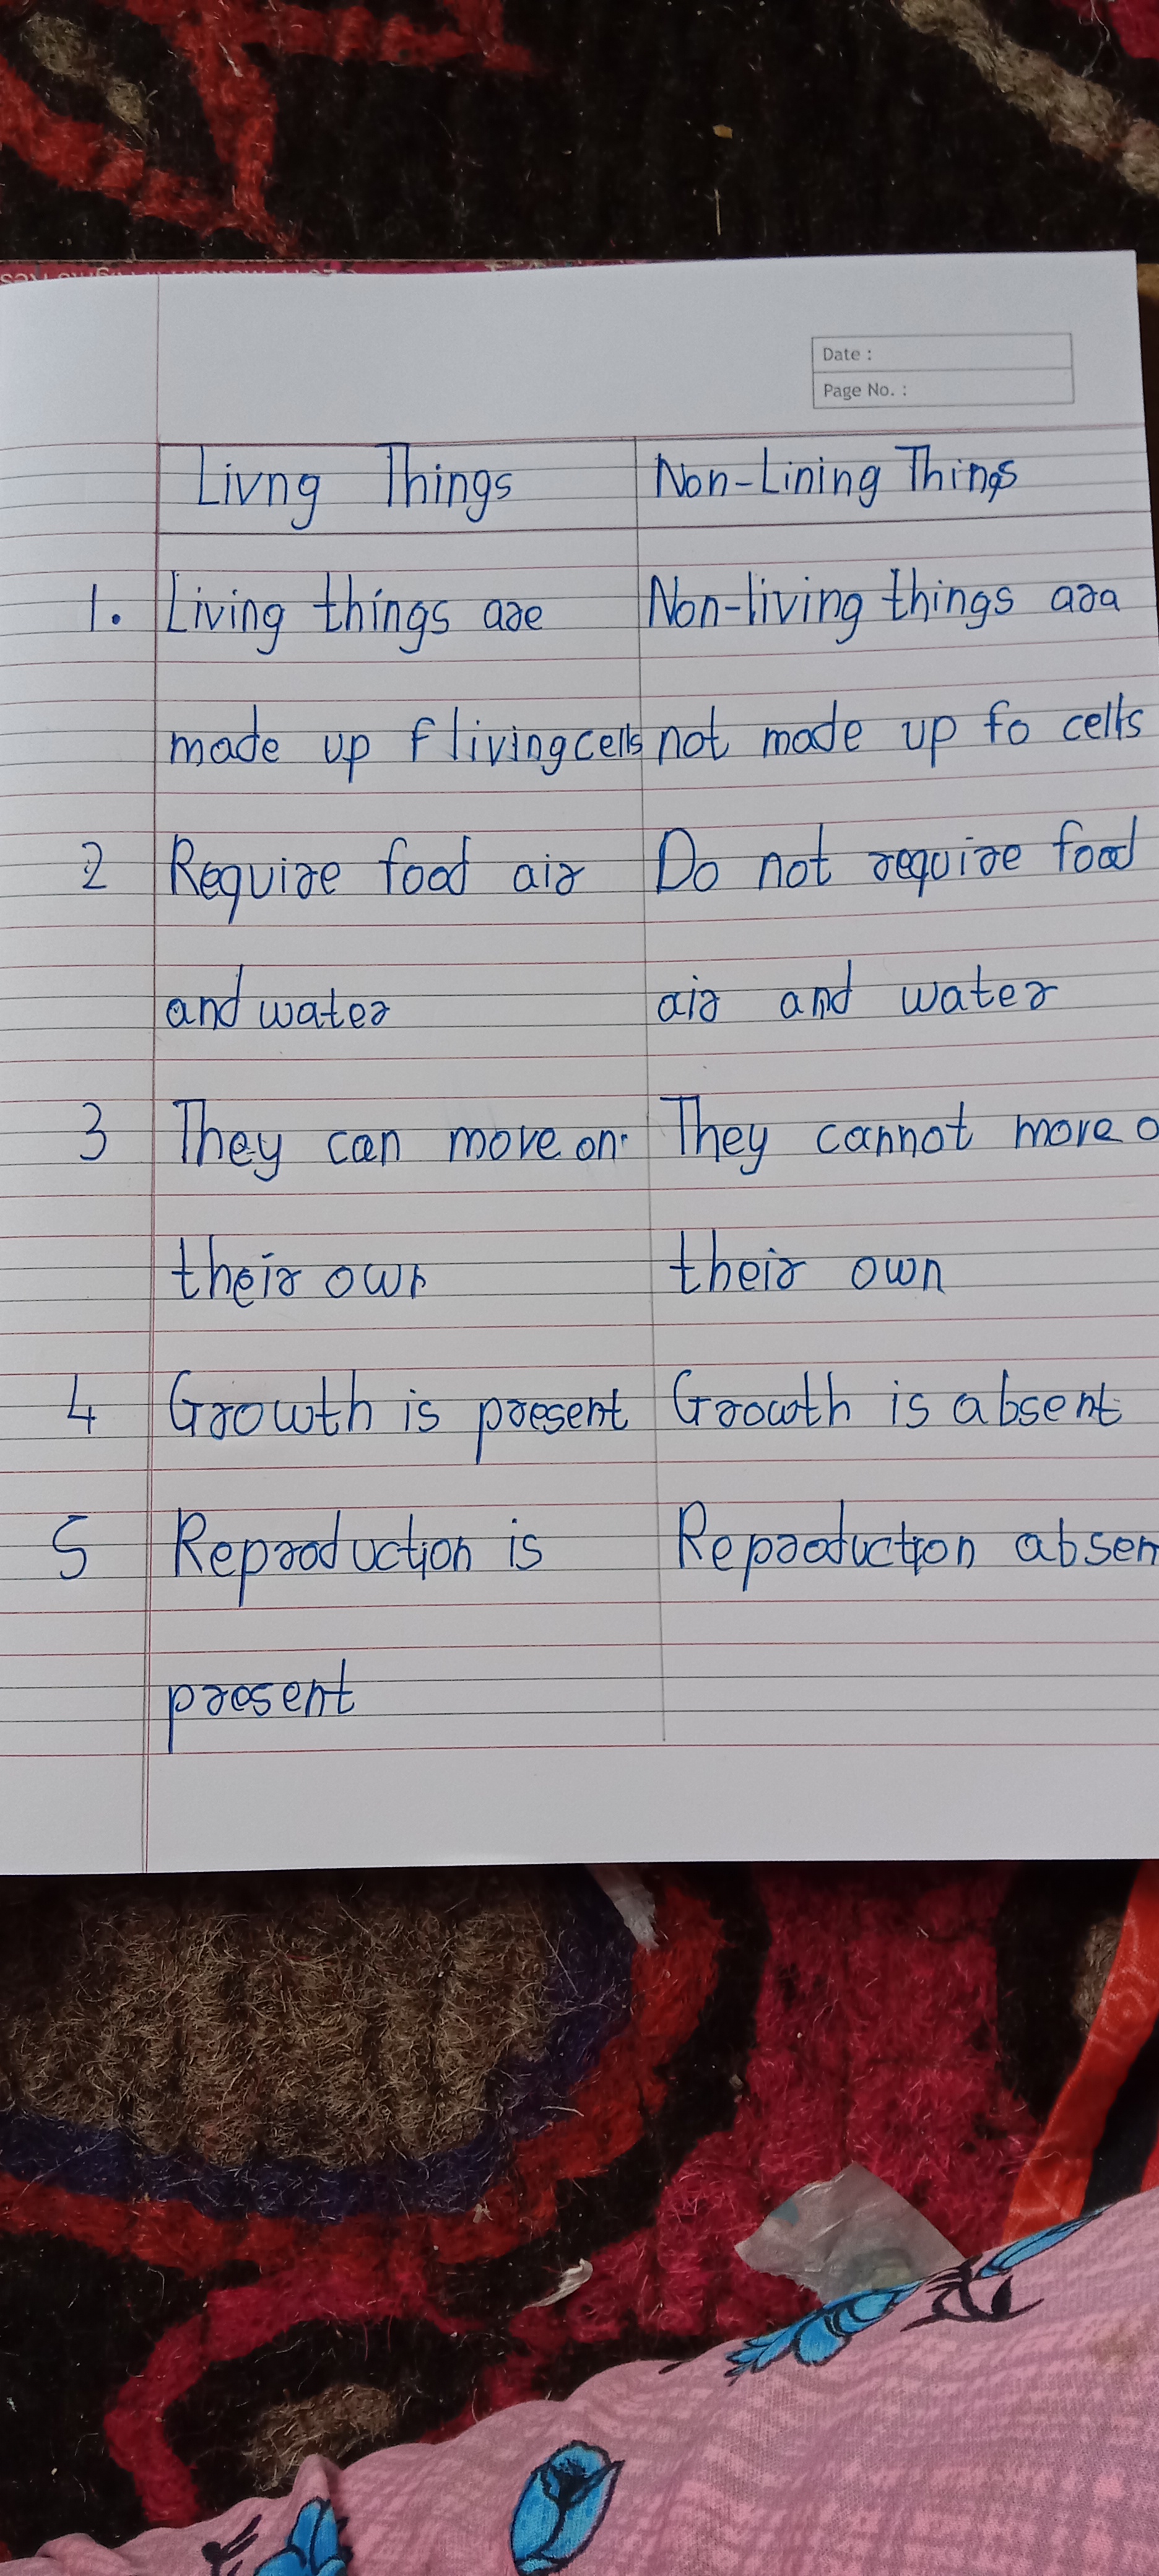 Date :
Page No. :
Livng Things Non-Lining Things
1. Living things are Non-living things ara
made up f living cells not made up fo cells
2 Require food air Do not require food
and water air and water
3 They can move on They cannot move o
their own their own
4 Growth is present Growth is absent
5 Reproduction is Reproduction absen
present